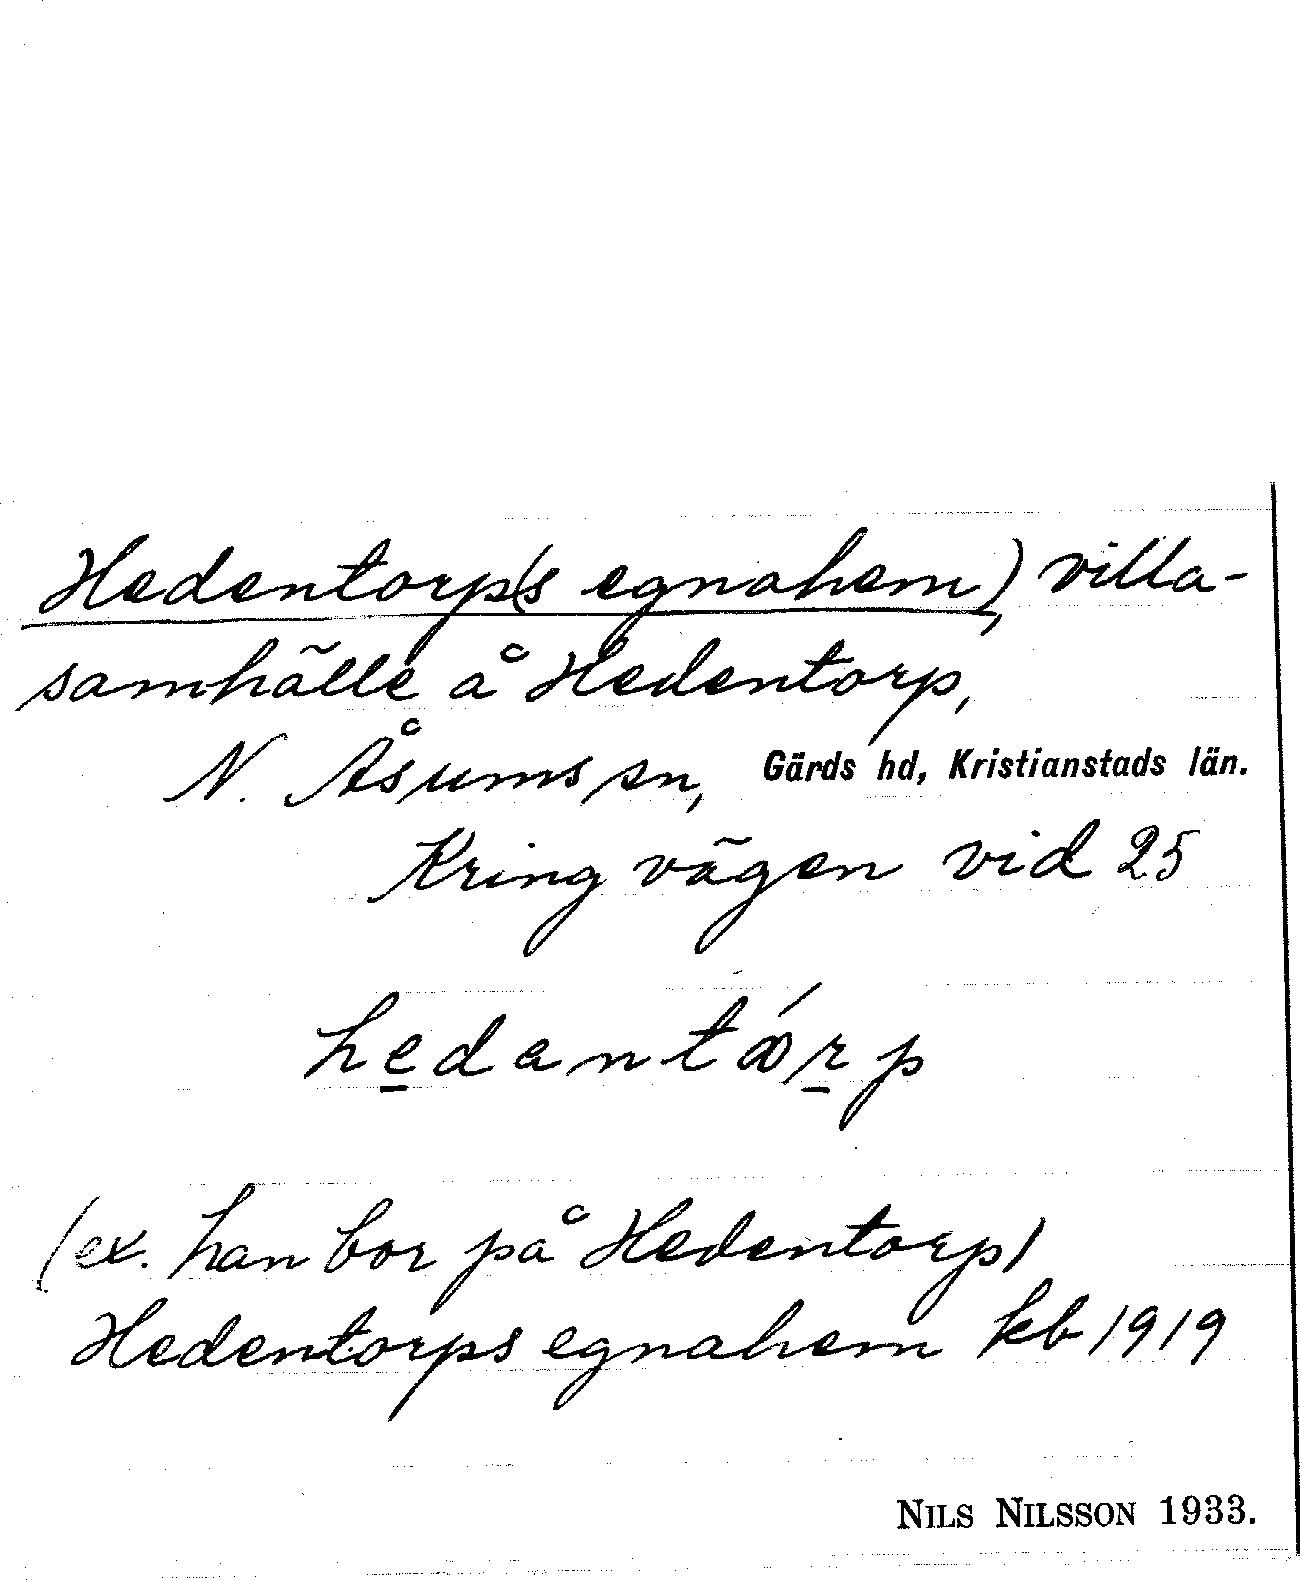 Hedentorp(s egnahem), villa-
samhälle å Hedentorp,
N. Åsums sn, Gärds hd, Kristianstads län.
Kring vägen vid 25
hedantǿrp
(ex. han bor på Hedentorp)
Hedentorps egnahem kb 1919
NILS NILSSON 1933.